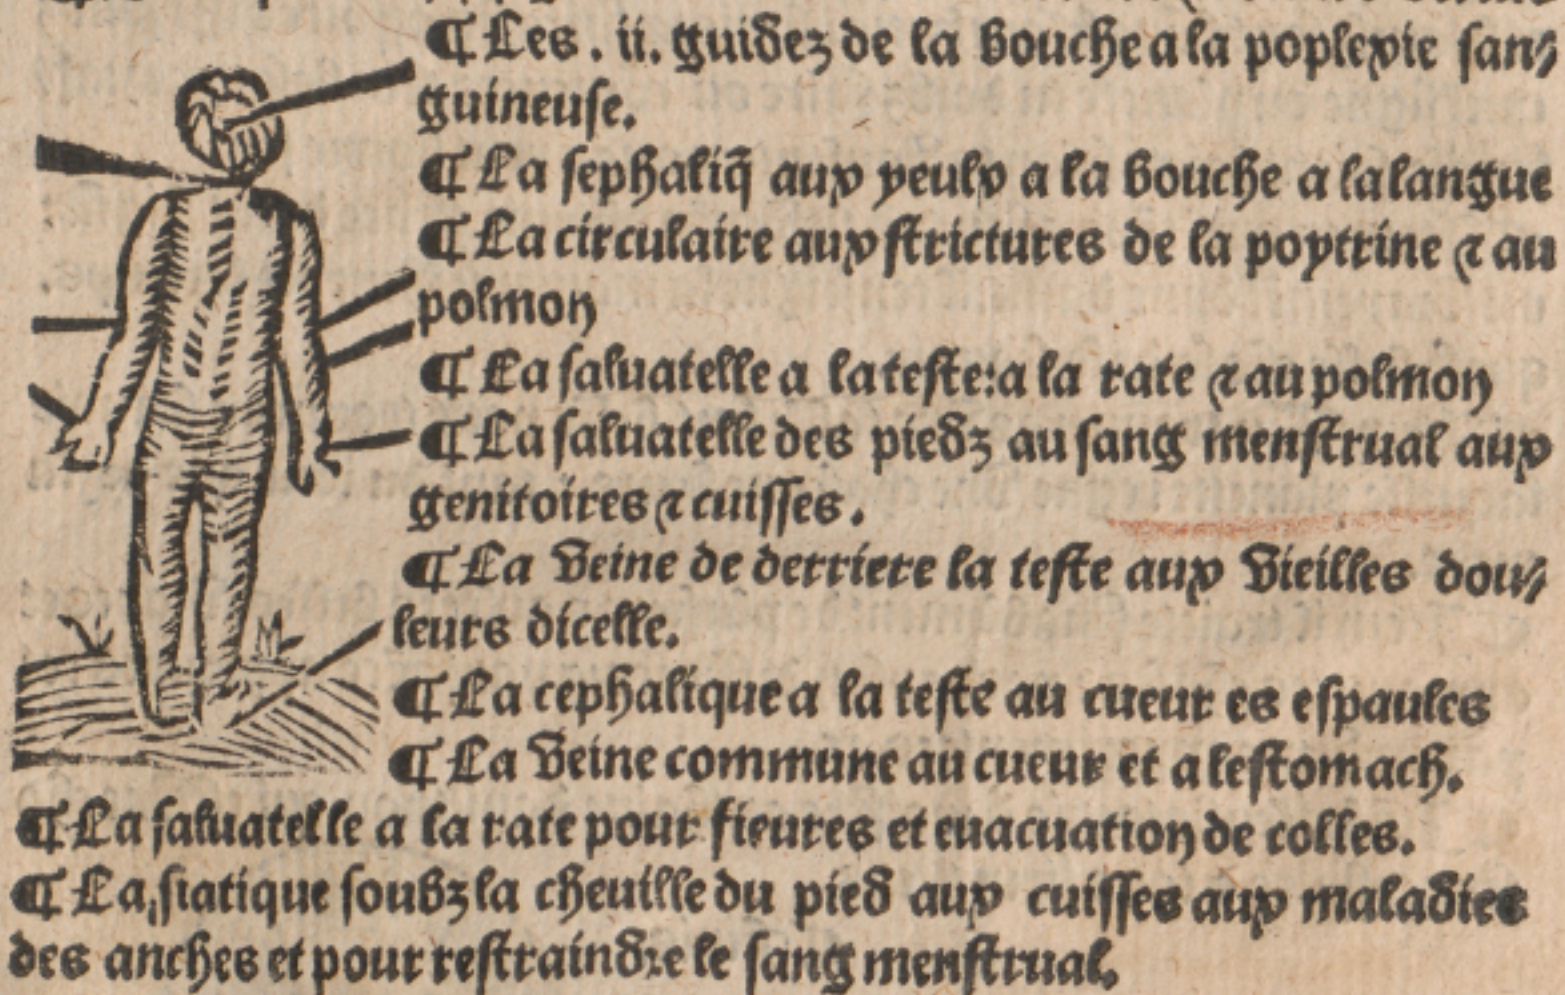 ¶ Les . ii. guidez de la bouche a la poplexie san⸗
guineuse.
¶ La sephaliq̃ aux yeulx a la bouche a la langue
¶ La circulaire aux strictures de la poytrine ⁊ au
polmon
¶ La saluatelle a la teste: a la rate ⁊ au polmon
¶ La saluatelle des piedz au sang menstrual aux
genitoires ⁊ cuisses.
¶ La veine de derriere la teste aux vieilles dou⸗
leurs dicelle.
¶ La cephalique a la teste au cueur es espaules
¶ La veine commune au cueur et a lestomach.
¶ La saluatelle a la rate pour fieures et euacuation de colles.
¶ La siatique soubz la cheuille du pied aux cuisses aux maladies
des anches et pour restraindre le sang menstrual.